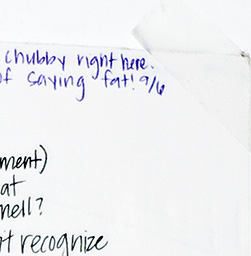 chubby right here.
of saying fat! 9/6
ment)
at
mell?
n't recognize